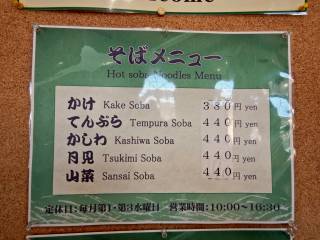 そばメニュー
Hot soba Noodles Menu
かけ Kake Soba 380円 yen
てんぷら Tempura Soba 440円 yen
かしわ Kashiwa Soba 440円 yen
月見 Tsukimi Soba 440円 yen
山菜 Sansai Soba 440円 yen
定休日:毎月第1・第3水曜日 営業時間:10:00〜16:30